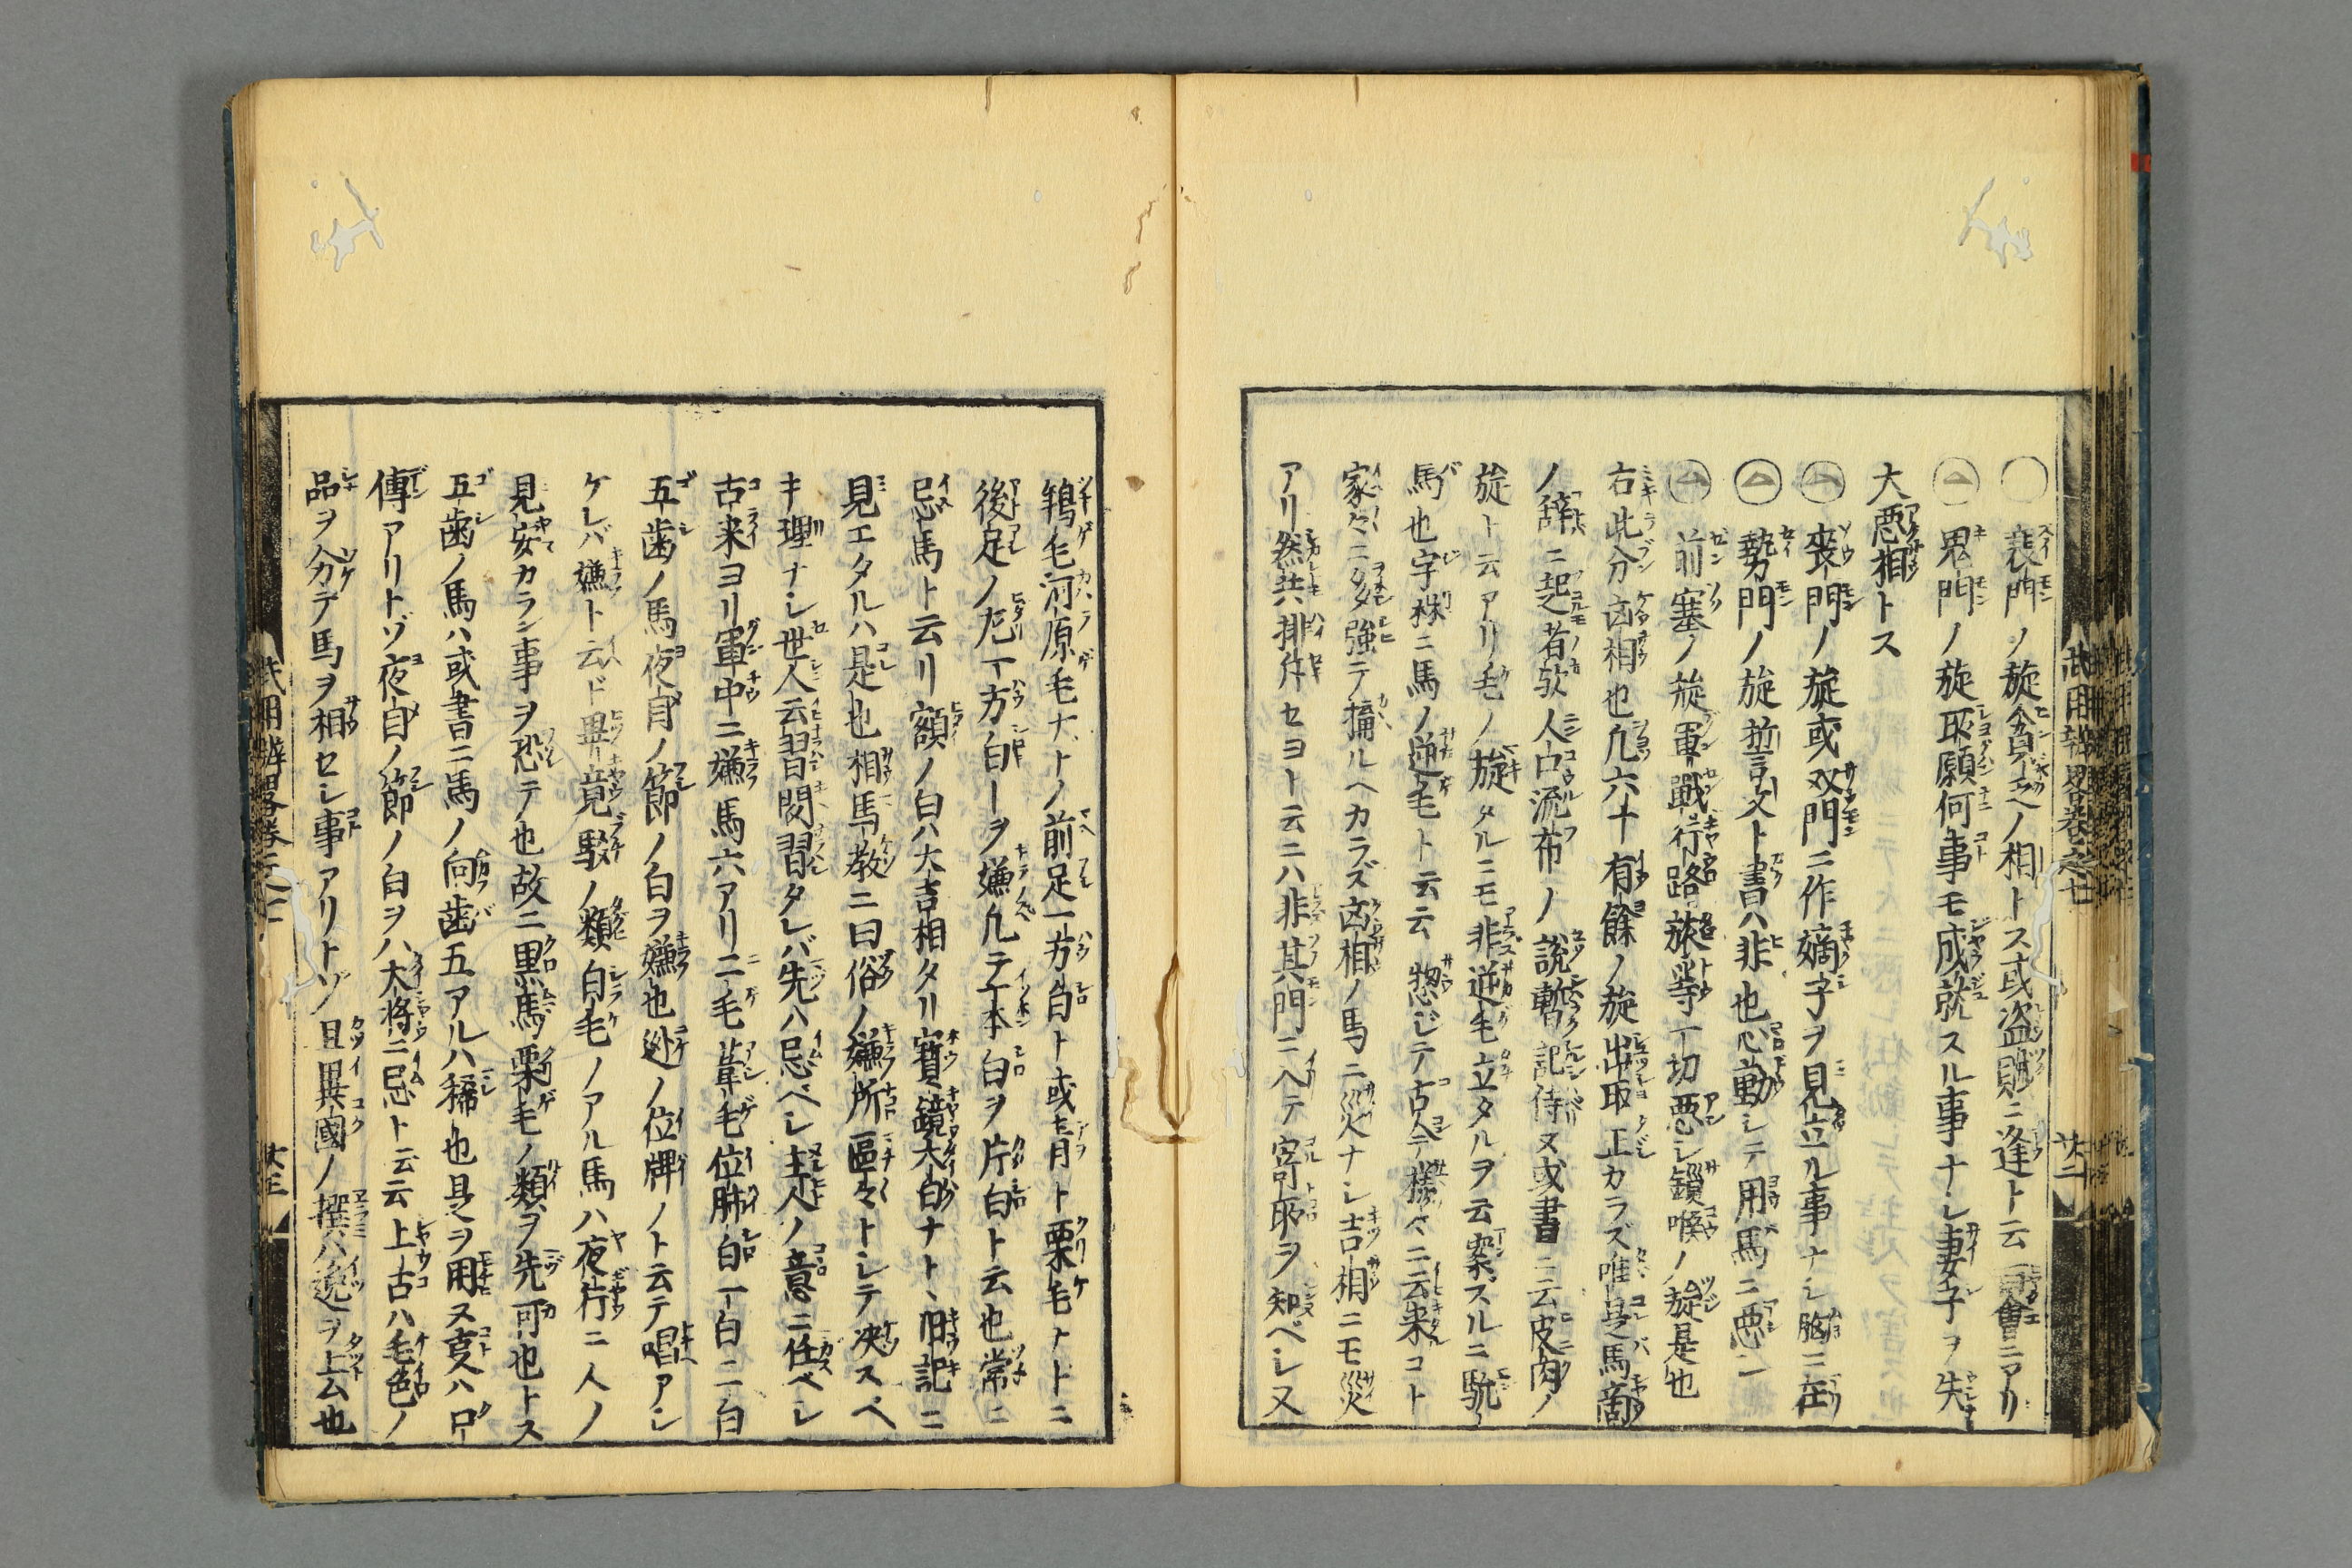 衰門ノ旋貧乏ノ相トス或盗賊ニ逢ト云圖會ニアリ
鬼門ノ旋所願何事モ成就スル事ナシ妻子ヲ失
大悪相トス
喪門ノ旋或双門ニ作嫡子ヲ見立ル事ナシ胸ニ在
勢門ノ旋誓文ト書ハ非也心動シテ用馬ニ悪シ
前塞ノ旋軍戰行路旅等一切悪シ鏡喉ノ旋是也
右此分凶相也凡六十有餘ノ旋出所正カラズ唯是馬商
ノ辞ニ起者歟人口流布ノ說暫記侍ヌ或書ニ云皮肉ノ
旋ト云アリ毛ノ旋タルニモ非逆毛立タルヲ云案ズルニ駪
馬也字彙ニ馬ノ逆毛ト云云惣ジテ古今樣々ニ云来コト
家々ニ多強テ擶ルヘカラズ凶相ノ馬ニ災ナシ吉相ニモ災
アリ然共排斥セヨト云ニハ非其門ニ入テ寄所ヲ知ベシ又
武用辨畧巻之廿
廿二
鴾毛河原毛ナトノ前足一方白ト或青ト栗毛ナドニ
後足ノ左一方白ーヲ嫌凡テ一本白ヲ片白ト云也常ニ
忌馬ト云リ額ノ白ハ大吉相タリ寳鏡大白ナト、旧記ニ
見エタルハ是也相馬教ニ曰俗ノ嫌所區々トシテ决スベ
キ理ナシ世人云習聞習タレバ先ハ忌ベシ主人ノ意ニ任ベシ
古来ヨリ軍中ニ嫌馬六アリ二毛葦毛位牌白一白二白
五歯ノ馬夜目ノ節ノ白ヲ嫌也逊ノ位牌ノト云テ唱アシ
ケレバ嫌ト云ド畢竟駁ノ類白毛ノアル馬ハ夜行ニ人ノ
見安カラン事ヲ恐テ也故ニ黒馬栗毛ノ類ヲ先可也トス
五歯ノ馬ハ或書ニ馬ノ向歯五アルハ稀也是ヲ用ヌ叓ハ口
傳アリトゾ夜目ノ節ノ白ヲハ大將ニ忌ト云云上古ハ毛色ノ
品ヲ分テ馬ヲ相セシ事アリトゾ且異國ノ撰ハ逸ヲ上ム也
武用辨畧巻之
廿三